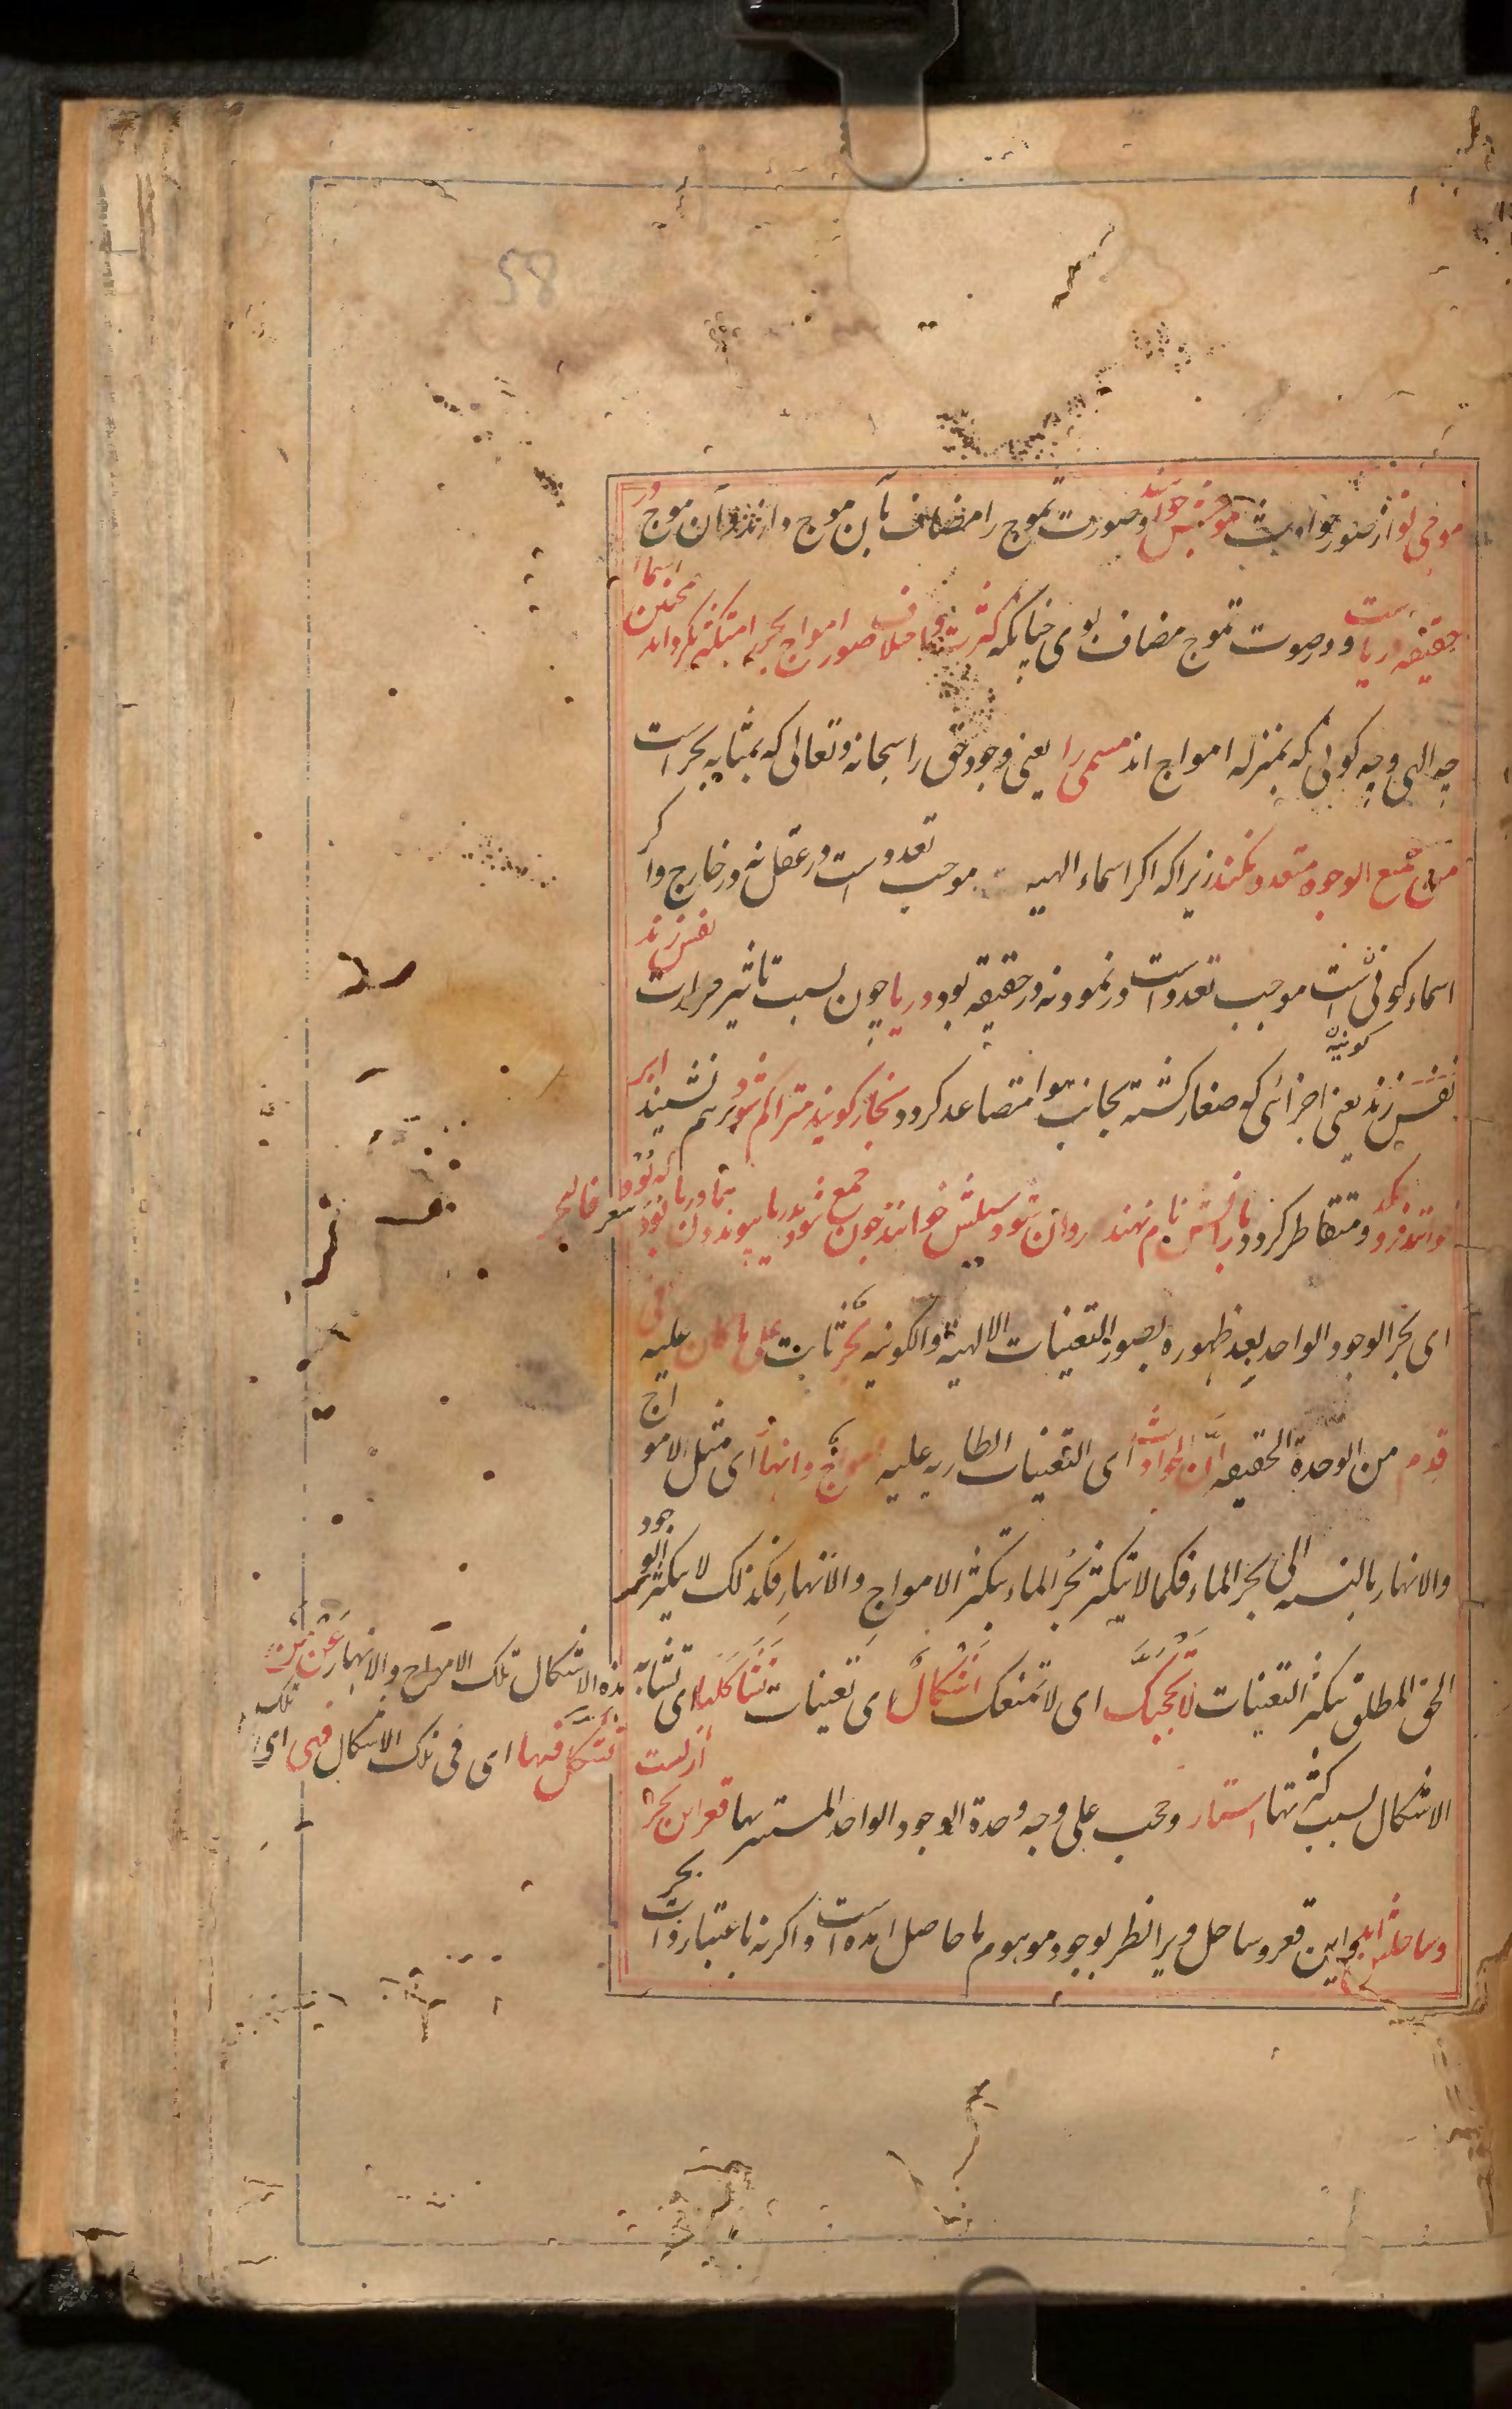 58
موجی نو از صور جواهریت موجش خوانند و صورت تموج را مضاف بآن موج دارند و آن موج در
حقیقه دریاست و در صورت تموج مضاف بوی چنانکه کثرت و اختلاف صور امواج بحر را متکثر نکرداند همچنین اسما
چه الهی و چه کونی که بمنزله امواج اند مسمی را یعنی وجود حق را سبحانه و تعالی که بمثابه بحر است
من جمیع الوجوه متعدد نکند زیرا که اکر اسماء الهیه موجب تعدد است در عقل نه در خارج و اکر
اسماء کونی است موجب تعدد است در نمود نه در حقیقه بود دریا چون بسبب تاثیر حرارت نفس زند
نفس زند یعنی اجزائی کونیه که صغار کشته بجانب هوا متصاعد کردد بخار کویند متراکم شود برهم نشیند ابر
خوانند فرو چکد و متقاطر کردد بارانش نام نهند روان شود سیلش خوانند چون جمع شود بدریا پیوندد همان دریا بود که بود شعر فالبحر
ای بحر الوجود الواحد بعد ظهوره بصور التعینات الالهیة والکونیه بحر ثابت علی ما کان علیه فی
قدم من الوحدة الحقیقه ان الحوادث ای التعینات الطاریه علیه امواج وانهار ای مثل الامواج
والانهار بالنسبه الی بحر الماء فکما لا یتکثر بحر الماء بتکثر الامواج والانهار فکذلک لا یتکثر الوجود
الحق المطلق بتکثر التعینات لا تحجبنک ای لا تمنعک اشکال ای تعینات تشاکلها ای تشابه هذه الاشکال تلک الامواج والانهار عمن
تشکل فیها ای فی تلک الاشکال فهی ای تلک
الاشکال بسبب کثرتها استار وحجب علی وجه وحدة الوجود الواحد المستتر بها قعر این بحر ازلست
وساحلش ابد و این قعر و ساحل ویرا نظر بوجود موهوم ما حاصل آمده است و اکرنه باعتبار ذات بحر